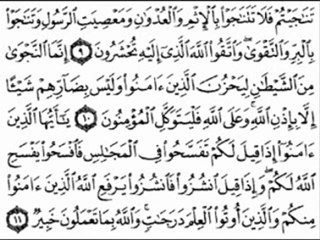 تَنَٰجَيۡتُمۡ فَلَا تَتَنَٰجَوۡاْ بِٱلۡإِثۡمِ وَٱلۡعُدۡوَٰنِ وَمَعۡصِيَتِ ٱلرَّسُولِ وَتَنَٰجَوۡاْ
بِٱلۡبِرِّ وَٱلتَّقۡوَىٰۖ وَٱتَّقُواْ ٱللَّهَ ٱلَّذِيٓ إِلَيۡهِ تُحۡشَرُونَ ٩ إِنَّمَا ٱلنَّجۡوَىٰ
مِنَ ٱلشَّيۡطَٰنِ لِيَحۡزُنَ ٱلَّذِينَ ءَامَنُواْ وَلَيۡسَ بِضَآرِّهِمۡ شَيۡـًٔا
إِلَّا بِإِذۡنِ ٱللَّهِۚ وَعَلَى ٱللَّهِ فَلۡيَتَوَكَّلِ ٱلۡمُؤۡمِنُونَ ١٠ يَٰٓأَيُّهَا ٱلَّذِينَ
ءَامَنُوٓاْ إِذَا قِيلَ لَكُمۡ تَفَسَّحُواْ فِي ٱلۡمَجَٰلِسِ فَٱفۡسَحُواْ يَفۡسَحِ
ٱللَّهُ لَكُمۡۖ وَإِذَا قِيلَ ٱنشُزُواْ فَٱنشُزُواْ يَرۡفَعِ ٱللَّهُ ٱلَّذِينَ ءَامَنُواْ
مِنكُمۡ وَٱلَّذِينَ أُوتُواْ ٱلۡعِلۡمَ دَرَجَٰتٖۚ وَٱللَّهُ بِمَا تَعۡمَلُونَ خَبِيرٞ ١١